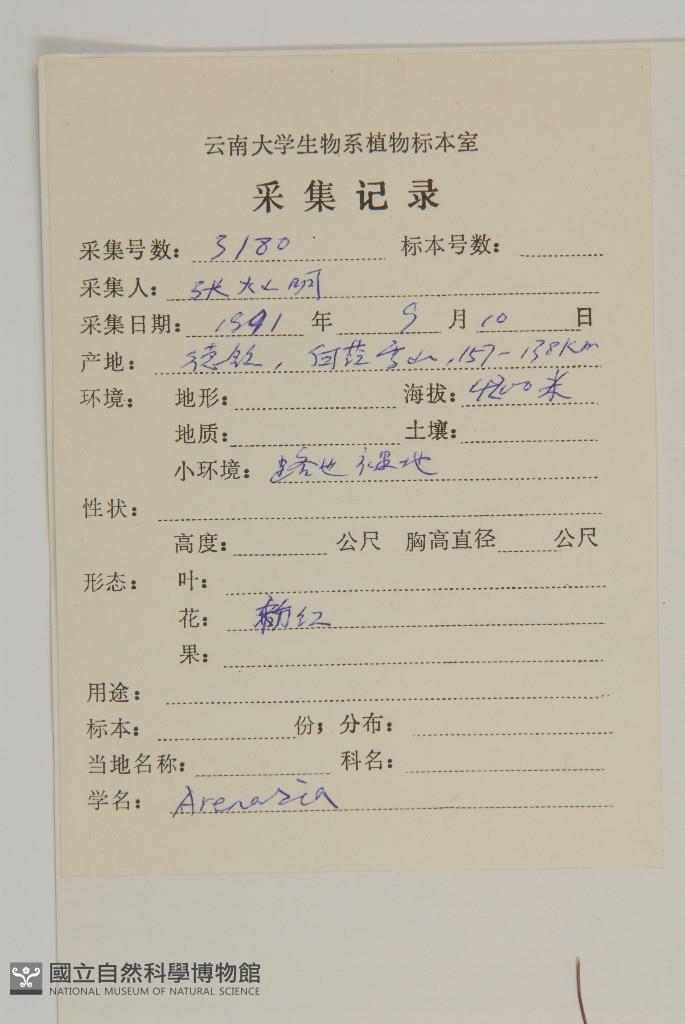 云南大学生物系植物标本室
采集记录
采集号数: 3180 标本号数:
采集人: 张大
采集日期: 1991 年 9 月 10 日
产地: 德钦, 雪山, 157-158Km
环境: 地形: 海拔: 4200米
地质: 土壤:
小环境: 湿地
性状:
高度: 公尺 胸高直径 公尺
形态: 叶:
花: 粉红
果:
用途:
标本: 份; 分布:
当地名称: 科名:
学名: Arenaria
國立自然科學博物館
NATIONAL MUSEUM OF NATURAL SCIENCE